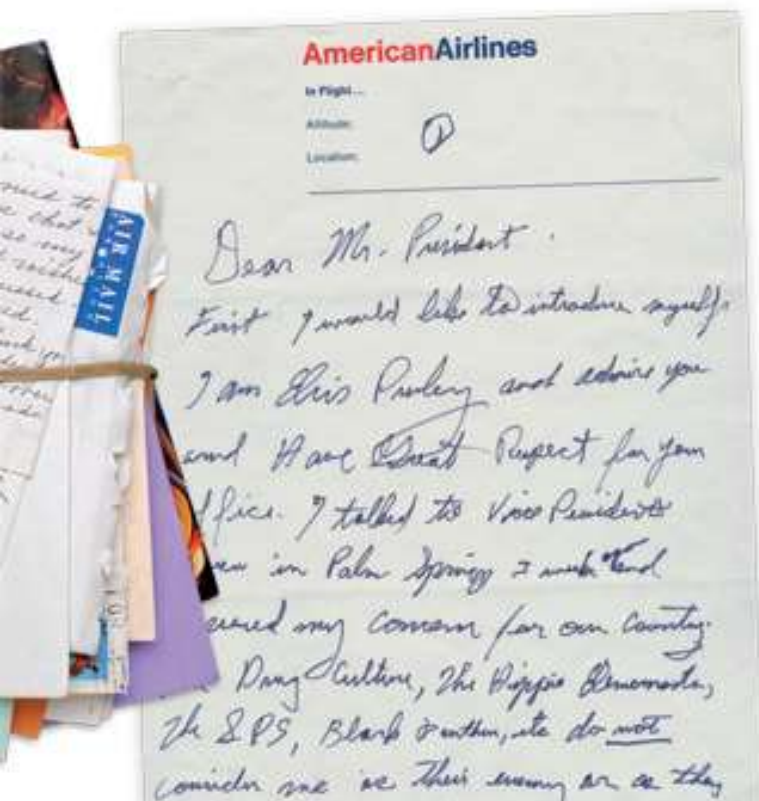 AmericanAirlines
In Flight...
Altitude:
Location:
1
Dear Mr. President.
First I would like to introduce myself.
I am Elvis Presley and admire you
and Have Great Respect for your
ffice. I talked to Vice President
new in Palm Springs 3 weeks ago and
my concern for our country.
Drug Culture, The Hippie Elements,
The SDS, Black Panthers, etc do not
consider me as their enemy or as they
AIR MAIL